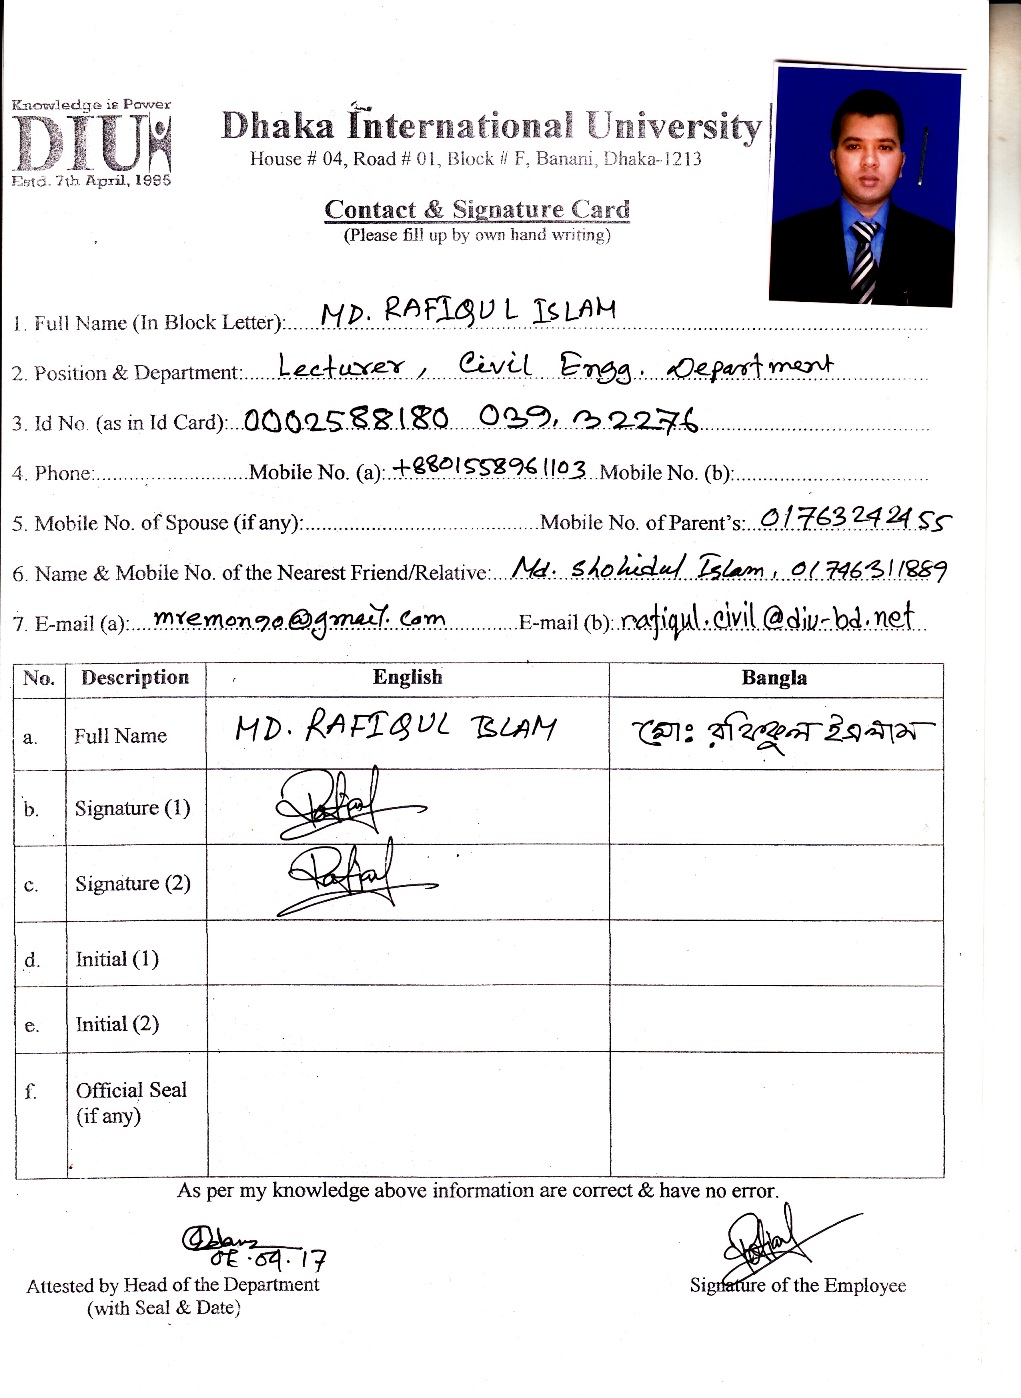 Knowledge is Power
DIU
Estd. 7th April, 1995
Dhaka International University
House # 04, Road # 01, Block # F, Banani, Dhaka-1213
Contact & Signature Card
(Please fill up by own hand writing)
1. Full Name (In Block Letter): MD. RAFIQUL ISLAM
2. Position & Department: Lecturer, Civil Engg. Department
3. Id No. (as in Id Card): 0002588180 039, 32276
4. Phone: Mobile No. (a): +8801558961103 Mobile No. (b):
5. Mobile No. of Spouse (if any): Mobile No. of Parent's: 01763242455
6. Name & Mobile No. of the Nearest Friend/Relative: Md. Shohidul Islam, 01746311889
7. E-mail (a): mremon90@gmail.com E-mail (b): rafiqul.civil@diu-bd.net
No. Description English Bangla
a. Full Name MD. RAFIQUL ISLAM মোঃ রফিকুল ইসলাম
b. Signature (1)
c. Signature (2)
d. Initial (1)
e. Initial (2)
f. Official Seal
(if any)
As per my knowledge above information are correct & have no error.
.09.17
Attested by Head of the Department
(with Seal & Date)
Signature of the Employee